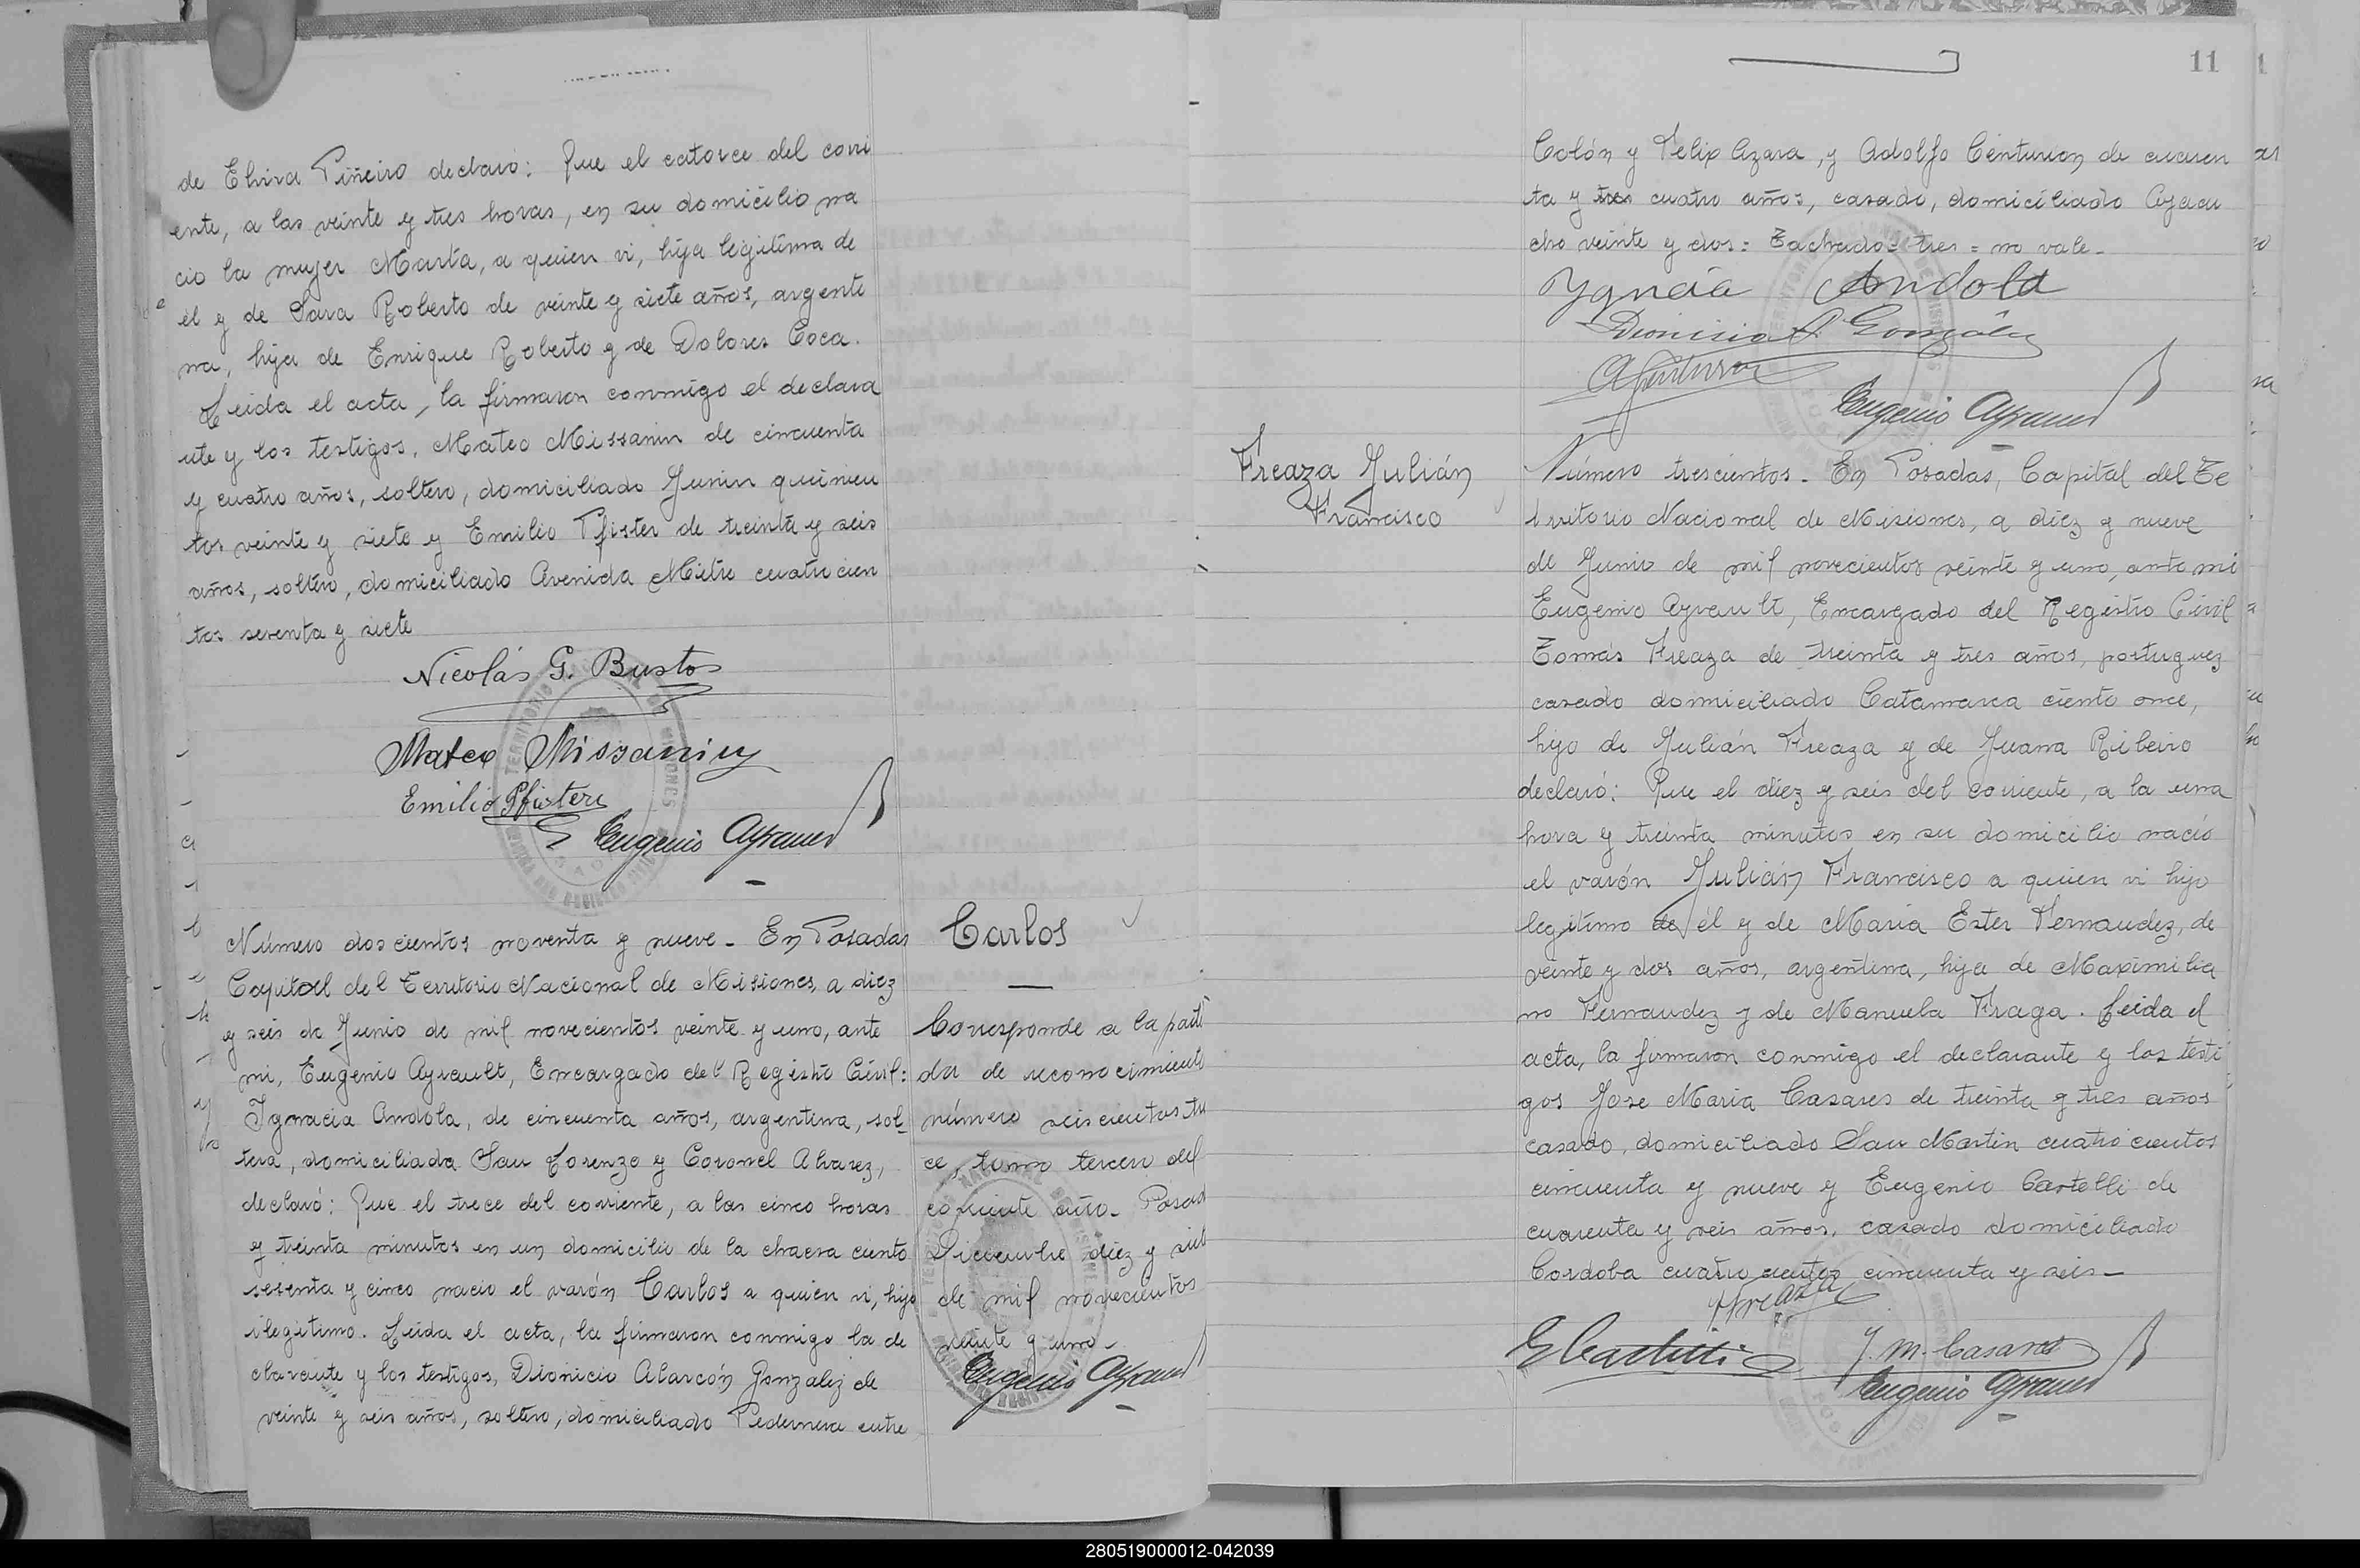 de Elvira Piñeiro declaró: Que el catorce del corri
ente, a las veinte y tres horas, en su domicilio na
ció la mujer Marta, a quien vi, hija legítima de
él y de Sara Roberto de veinte y siete años, argenti
na, hija de Enrique Roberto y de Dolores Coca.
Leida el acta, la firmaron conmigo el declara
nte y los testigos, Mateo Missanin de cincuenta
y cuatro años, soltero, domiciliado Junin quinien
tos veinte y siete y Emilio Pfister de treinta y seis
años, soltero, domiciliado Avenida Mitre cuatrocien
tos setenta y siete
Nicolás G. Bustos
Mateo Missanin
Emilio Pfister
Eugenio Ayrault
Número doscientos noventa y nueve - En Posadas
Capital del Territorio Nacional de Misiones, a diez
y seis de Junio de mil novecientos veinte y uno, ante
mi, Eugenio Ayrault, Encargado del Registro Civil:
Ignacia Andola, de cincuenta años, argentina, sol-
tera, domiciliada San Lorenzo y Coronel Alvarez,
declaró: Que el trece del corriente, a las cinco horas
y treinta minutos en un domicilio de la chacra ciento
sesenta y cinco nació el varón Carlos a quien vi, hijo
ilegítimo. Leida el acta, la firmaron conmigo la de
clarante y los testigos, Dionicio Alarcón Gonzalez de
veinte y seis años, soltero, domiciliado Pedernera entre
Carlos
Corresponde a la parti
da de reconocimiento
número seiscientos tre
ce, tomo tercero del
corriente año. Posad
Diciembre diez y siete
de mil novecientos
veinte y uno.
Eugenio Ayrault
11
Colón y Felix Azara, y Adolfo Centurion de cuaren
ta y tres cuatro años, casado, domiciliado Ayacu
cho veinte y dos = Tachado = tres = no vale.
Ygnacia Andola
Dionicio A. González
A Centurion
Eugenio Ayrault
Freaza Julián
Francisco
Número trescientos. En Posadas, Capital del Te
rritorio Nacional de Misiones, a diez y nueve
de Junio de mil novecientos veinte y uno, ante mi
Eugenio Ayrault, Encargado del Registro Civil
Tomás Freaza de treinta y tres años, portuguez
casado domiciliado Catamarca ciento once,
hijo de Julián Freaza y de Juana Ribeiro
declaró: Que el diez y seis del corriente, a la una
hora y treinta minutos en su domicilio nació
el varón Julián Francisco a quien vi hijo
legítimo de él y de Maria Ester Fernandez, de
veinte y dos años, argentina, hija de Maximilia
no Fernandez y de Manuela Fraga. Leida el
acta, la firmaron conmigo el declarante y los testi
gos Jose Maria Casares de treinta y tres años
casado, domiciliado San Martin cuatrocientos
cincuenta y nueve y Eugenio Castelli de
cuarenta y seis años, casado domiciliado
Cordoba cuatrocientos cincuenta y seis -
TFreaza
E Castelli J. M. Casares
Eugenio Ayrault
280519000012-042039